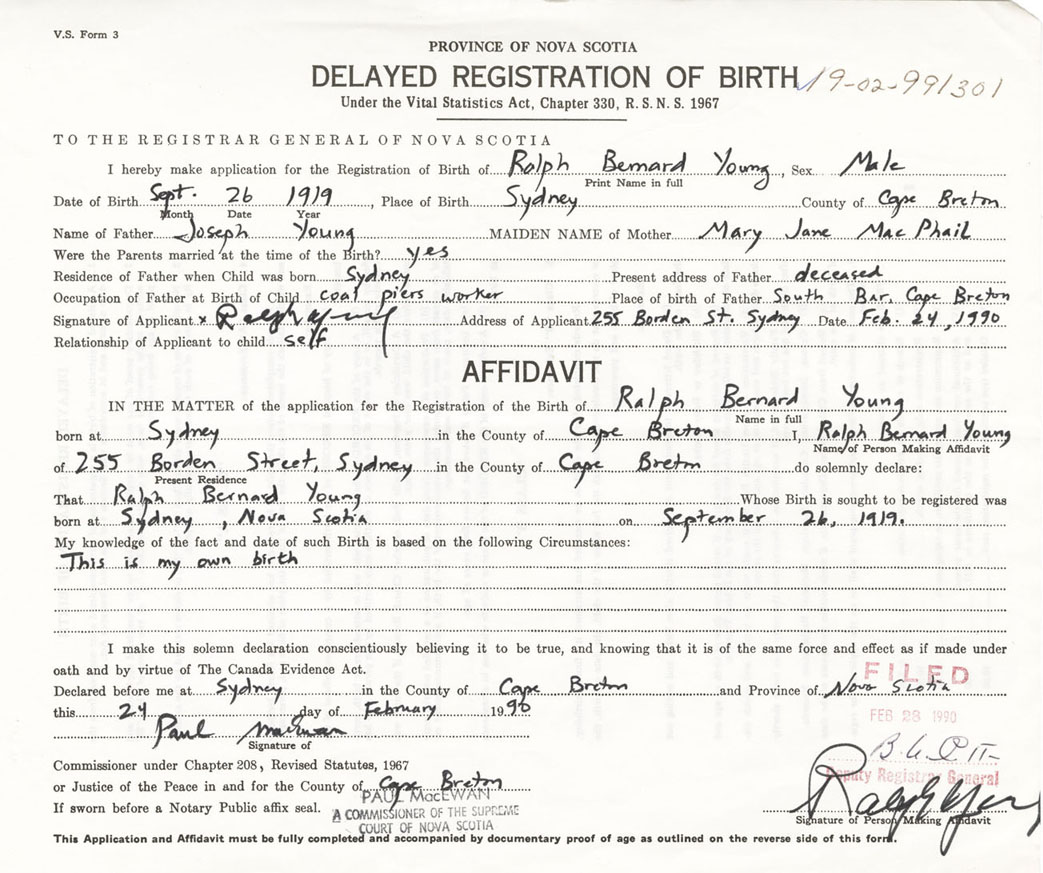 V.S. Form 3
PROVINCE OF NOVA SCOTIA
DELAYED REGISTRATION OF BIRTH 19-02-991301
Under the Vital Statistics Act, Chapter 330, R.S.N.S. 1967
TO THE REGISTRAR GENERAL OF NOVA SCOTIA
I hereby make application for the Registration of Birth of Ralph Bernard Young, Sex Male
Print Name in full
Date of Birth Sept. 26 1919, Place of Birth Sydney County of Cape Breton
Month Date Year
Name of Father Joseph Young MAIDEN NAME of Mother Mary Jane MacPhail
Were the Parents married at the time of the Birth? yes
Residence of Father when Child was born Sydney Present address of Father deceased
Occupation of Father at Birth of Child coal piers worker Place of birth of Father South Bar, Cape Breton
Signature of Applicant x Ralph Young Address of Applicant 255 Borden St. Sydney Date Feb. 24, 1990
Relationship of Applicant to child self
AFFIDAVIT
IN THE MATTER of the application for the Registration of the Birth of Ralph Bernard Young
Name in full
born at Sydney in the County of Cape Breton I, Ralph Bernard Young
Name of Person Making Affidavit
of 255 Borden Street, Sydney in the County of Cape Breton do solemnly declare:
Present Residence
That Ralph Bernard Young Whose Birth is sought to be registered was
born at Sydney, Nova Scotia on September 26, 1919.
My knowledge of the fact and date of such Birth is based on the following Circumstances:
This is my own birth
I make this solemn declaration conscientiously believing it to be true, and knowing that it is of the same force and effect as if made under
oath and by virtue of The Canada Evidence Act.
FILED
Declared before me at Sydney in the County of Cape Breton and Province of Nova Scotia
this 24 day of February 1990
FEB 28 1990
Paul MacEwan
Signature of
Commissioner under Chapter 208, Revised Statutes, 1967
Deputy Registrar General
or Justice of the Peace in and for the County of Cape Breton
PAUL MacEWAN
Ralph Young
If sworn before a Notary Public affix seal.
A COMMISSIONER OF THE SUPREME
COURT OF NOVA SCOTIA
Signature of Person Making Affidavit
This Application and Affidavit must be fully completed and accompanied by documentary proof of age as outlined on the reverse side of this form.